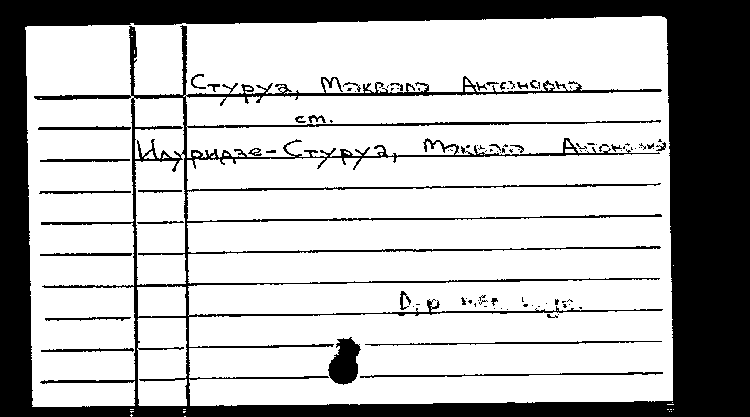 Стуруа, Маквала Антоновна
см.
Илуридзе-Стуруа, Маквала Антоновна